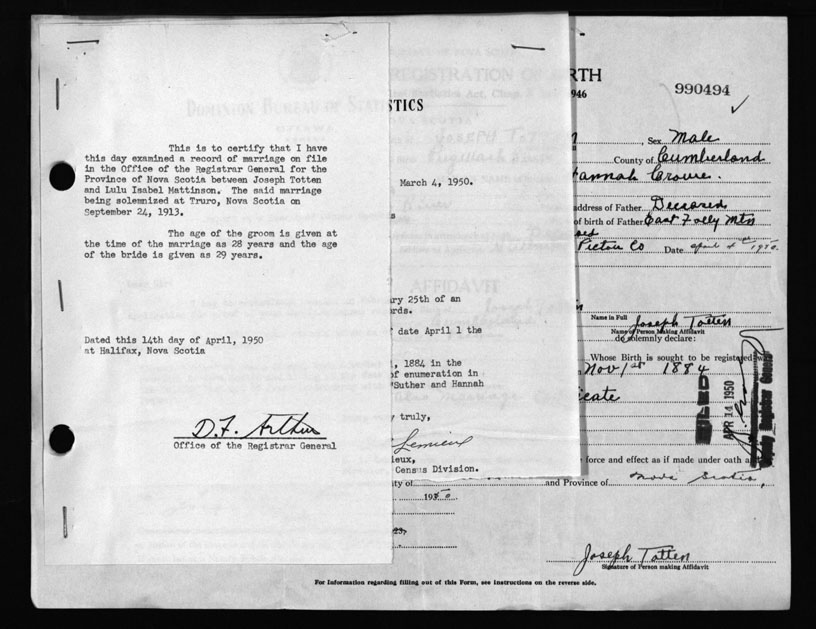 This is to certify that I have
this day examined a record of marriage on file
in the Office of the Registrar General for the
Province of Nova Scotia between Joseph Totten
and Lulu Isabel Mattinson. The said marriage
being solemnized at Truro, Nova Scotia on
September 24, 1913.
The age of the groom is given at
the time of the marriage as 28 years and the age
of the bride is given as 29 years.
Dated this 14th day of April, 1950
at Halifax, Nova Scotia
D.F. Arthur
Office of the Registrar General
DOMINION BUREAU OF STATISTICS
OTTAWA
March 4, 1950.
ry 25th of an
rds.
date April 1 the
, 1884 in the
of enumeration in
"Suther and Hannah
truly,
Lemieux
ieux,
Census Division.
REGISTRATION OF BIRTH
946
990494
Sex Male
County of Cumberland
annah Crowe.
address of Father Deceased
of birth of Father East Folly Mtn
Pictou Co Date April 4th 1950.
AFFIDAVIT
Name in Full
Joseph Totten
Name of Person Making Affidavit
do solemnly declare:
Whose Birth is sought to be registered was
Nov 1st 1884
icate
FILED
APR 14 1950
Deputy Registrar General
force and effect as if made under oath a
ty of
and Province of Nova Scotia,
1950
23,
Joseph Totten
Signature of Person making Affidavit
For Information regarding filling out of this Form, see instructions on the reverse side.